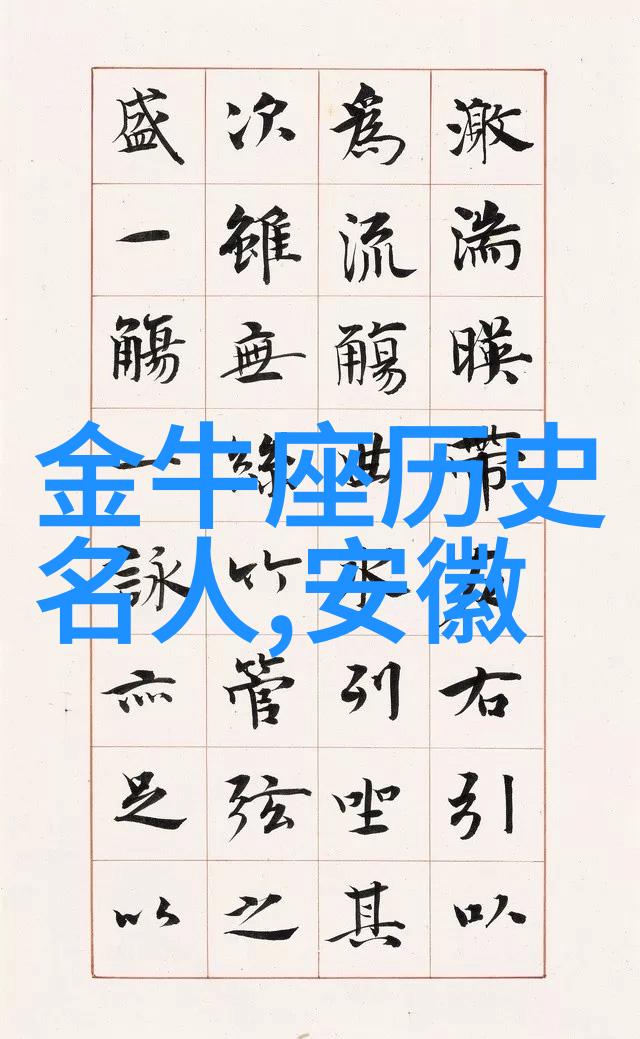 激湍暎帶左右引以
為流觴曲水列坐其
次雖無絲竹管弦之
盛一觴一詠亦足以
金牛座历史
名人,安徽